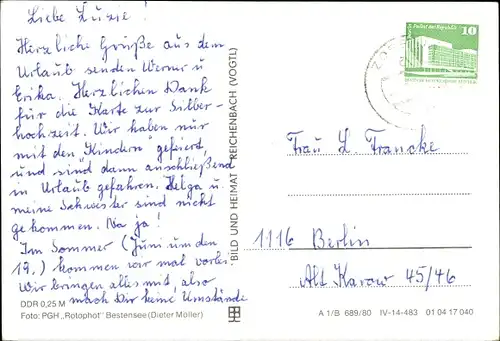 Liebe Luzie!
Herzliche Grüße aus dem
Urlaub senden Werner u.
Erika. Herzlichen Dank
für die Karte zur Silber-
hochzeit. Wir haben nur
mit den Kindern gefeiert,
und sind dann anschließend
in Urlaub gefahren. Helga u.
meine Schwester sind nicht
gekommen. Na ja!
Im Sommer (Juni um den
19.) kommen wir mal vorbei.
Wir bringen alles mit, also
mach Dir keine Umstände
DDR 0,25 M
Foto: PGH „Rotophot" Bestensee (Dieter Möller)
BILD UND HEIMAT REICHENBACH (VOGTL)
Palast der Republik
10
Frau L. Francke
1116 Berlin
Alt Karow 45/46
A 1/B 689/80 IV-14-483 01 04 17 040